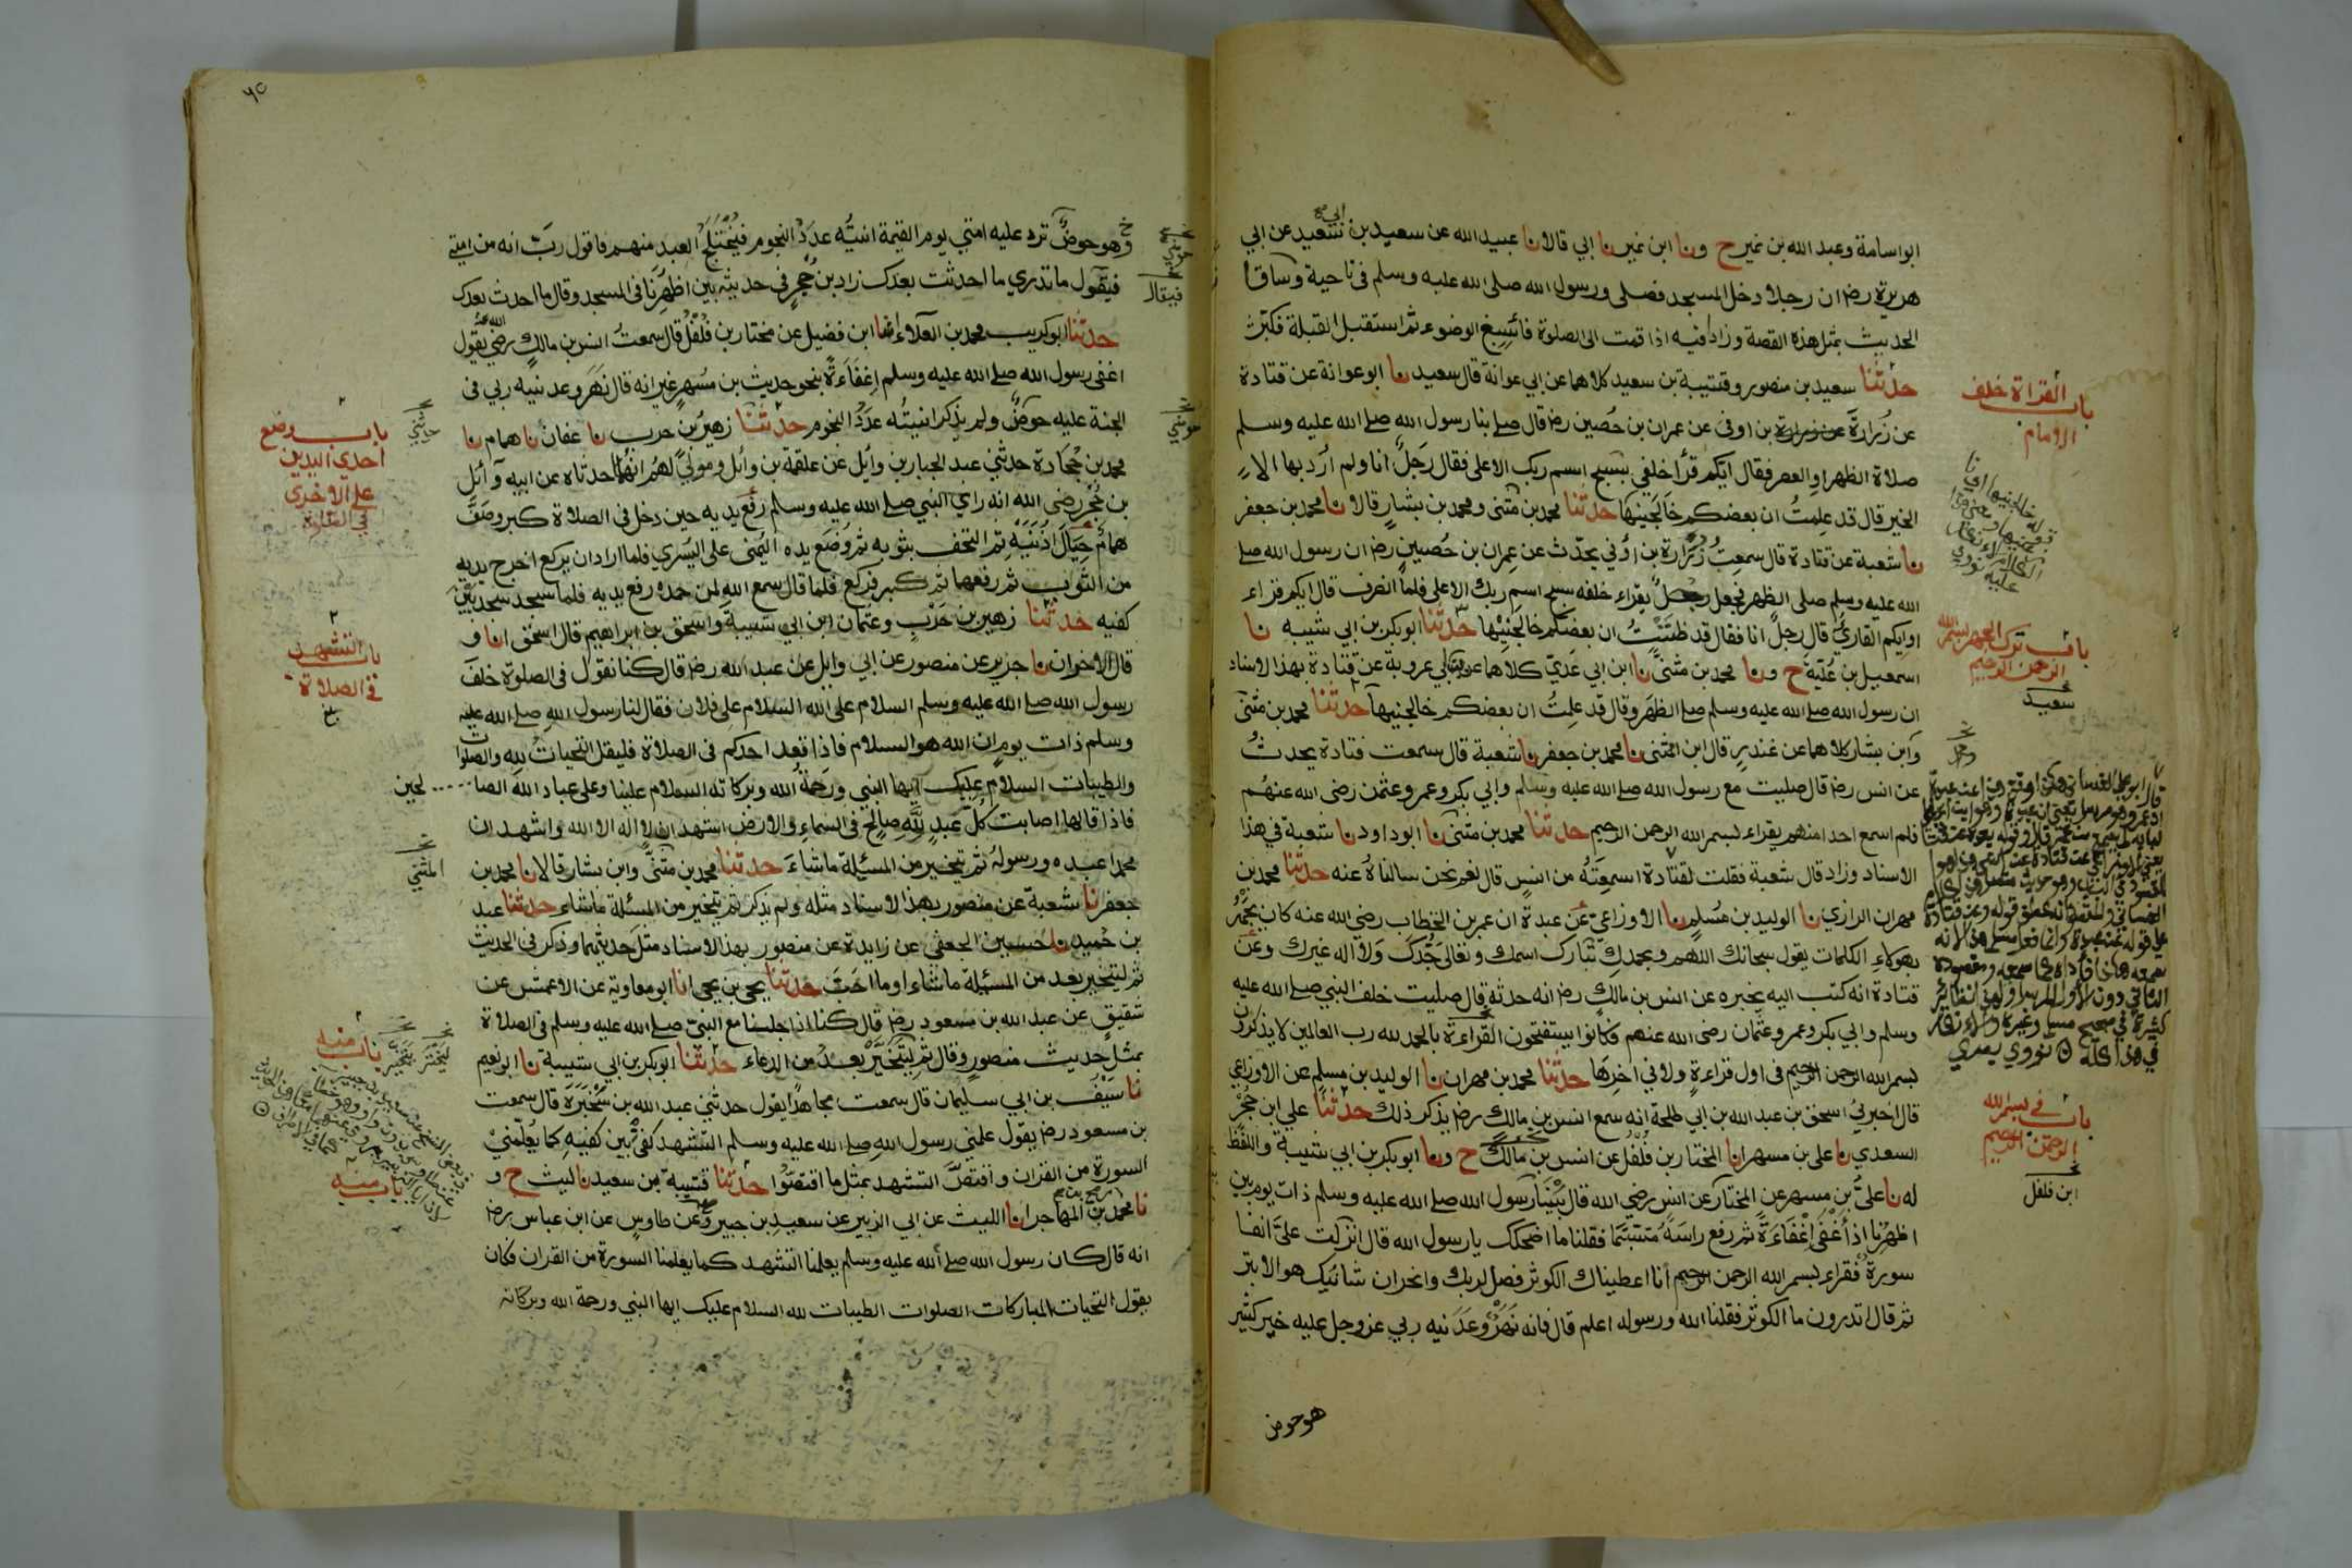 ابواسامة وعبد الله بن نمير ح ونا ابن نمير نا ابي قالا نا عبيد الله عن سعيد بن ابي سعيد عن ابي
هريرة رض ان رجلا دخل المسجد فصلى ورسول الله صلى الله عليه وسلم في ناحية وساقا
الحديث بمثل هذه القصة وزادا فيه اذا قمت الى الصلوة فاسبغ الوضوء ثم استقبل القبلة فكبر
حدثنا سعيد بن منصور وقتيبة بن سعيد كلاهما عن ابي عوانة قال سعيد نا ابو عوانة عن قتادة
عن زرارة بن اوفى عن عمران بن حصين رض قال صلى بنا رسول الله صلى الله عليه وسلم
صلاة الظهر او العصر فقال ايكم قرأ خلفي بسبح اسم ربك الاعلى فقال رجل انا ولم ارد بها الا
الخير قال قد علمت ان بعضكم خالجنيها حدثنا محمد بن مثنى ومحمد بن بشار قالا نا محمد بن جعفر
نا شعبة عن قتادة قال سمعت زرارة بن اوفي يحدث عن عمران بن حصين رض ان رسول الله صلى
الله عليه وسلم صلى الظهر فجعل رجل يقراء خلفه سبح اسم ربك الاعلى فلما انصرف قال ايكم قراء
او ايكم القاري قال رجل انا فقال قد ظننت ان بعضكم خالجنيها حدثنا ابو بكر بن ابي شيبه نا
اسمعيل بن علية ح ونا محمد بن مثنى نا ابن ابي عدي كلاهما عن ابن ابي عروبه عن قتادة بهذا الاسناد
ان رسول الله صلى الله عليه وسلم صلى الظهر وقال قد علمت ان بعضكم خالجنيها حدثنا محمد بن مثنى
وابن بشار كلاهما عن غندر قال ابن المثنى نا محمد بن جعفر نا شعبة قال سمعت قتادة يحدث
عن انس رض قال صليت مع رسول الله صلى الله عليه وسلم وابي بكر وعمر وعثمن رضى الله عنهم
فلم اسمع احدا منهم يقراء بسم الله الرحمن الرحيم حدثنا محمد بن مثنى نا ابو داود نا شعبة في هذا
الاسناد وزاد قال شعبة فقلت لقتادة اسمعته من انس قال نعم نحن سالناه عنه حدثنا محمد بن
مهران الرازي نا الوليد بن مسلم نا الاوزاعي عن عبدة ان عمر بن الخطاب رضى الله عنه كان يجهر
بهولاء الكلمات يقول سبحانك اللهم وبحمدك تبارك اسمك وتعالى جدك ولا اله غيرك وعن
قتادة انه كتب اليه يخبره عن انس بن مالك رض انه حدثه قال صليت خلف النبي صلى الله عليه
وسلم وابي بكر وعمر وعثمان رضى الله عنهم فكانوا يستفتحون القراءة بالحمد لله رب العالمين لا يذكرون
بسم الله الرحمن الرحيم في اول قراءة ولا في اخرها حدثنا محمد بن مهران نا الوليد بن مسلم عن الاوزاعي
قال اخبرني اسحق بن عبد الله بن ابي طلحة انه سمع انس بن مالك رض يذكر ذلك حدثنا علي ابن حجر
السعدي نا على بن مسهر انا المختار بن فلفل عن انس بن مالك ح ونا ابو بكر بن ابي شيبة واللفظ
له نا علي بن مسهر عن المختار عن انس رضي الله قال بينا رسول الله صلى الله عليه وسلم ذات يوم بين
اظهرنا اذ اغفى اغفاءة ثم رفع راسه متبسما فقلنا ما اضحكك يا رسول الله قال انزلت علي انفا
سورة فقراء بسم الله الرحمن الرحيم انا اعطيناك الكوثر فصل لربك وانحر ان شانيك هو الابتر
ثم قال اتدرون ما الكوثر فقلنا الله ورسوله اعلم قال فانه نهر وعدنيه ربي عز وجل عليه خير كثير
هو حوض
باب القراة خلف
الامام
باب ترك الجهر ببسم الله
الرحمن الرحيم
سعيد
باب في بسم الله
الرحمن الرحيم
ابن فلفل
وهو حوض ترد عليه امتي يوم القيمة انيته عدد النجوم فيختلج العبد منهم فاقول رب انه من امتي
فيقول ما تدري ما احدثت بعدك زاد بن حجر في حديثه بين اظهرنا في المسجد وقال ما احدث بعدك
حدثنا ابو كريب محمد بن العلاء انا ابن فضيل عن مختار بن فلفل قال سمعت انس بن مالك رضي الله عنه يقول
اغفى رسول الله صلى الله عليه وسلم اغفاءة بنحو حديث بن مسهر غير انه قال نهر وعدنيه ربي في
الجنة عليه حوض ولم يذكر انيته عدد النجوم حدثنا زهير بن حرب نا عفان نا همام نا
محمد بن جحادة حدثني عبد الجبار بن وائل عن علقمة بن وائل ومولى لهم انهما حدثاه عن ابيه وائل
بن حجر رضى الله انه راي النبي صلى الله عليه وسلم رفع يديه حين دخل في الصلاة كبر وصف
همام حيال اذنيه ثم التحف بثوبه ثم وضع يده اليمنى على اليسرى فلما اراد ان يركع اخرج يديه
من الثوب ثم رفعها ثم كبر فركع فلما قال سمع الله لمن حمده رفع يديه فلما سجد سجد بين
كفيه حدثنا زهير بن حرب وعثمان ابن ابي شيبة واسحق بن ابراهيم قال اسحق انا و
قال الاخران نا جرير عن منصور عن ابي وايل عن عبد الله رض قال كنا نقول في الصلوة خلف
رسول الله صلى الله عليه وسلم السلام على الله السلام على فلان فقال لنا رسول الله صلى الله عليه
وسلم ذات يوم ان الله هو السلام فاذا قعد احدكم في الصلاة فليقل التحيات لله والصلوات
والطيبات السلام عليك ايها النبي ورحمة الله وبركاته السلام علينا وعلى عباد الله الصا لحين
فاذا قالها اصابت كل عبد لله صالح في السماء والارض اشهد ان لا اله الا الله واشهد ان
محمدا عبده ورسوله ثم يتخير من المسئلة ما شاء حدثنا محمد بن مثنى وابن بشار قالا نا محمد بن
جعفر نا شعبة عن منصور بهذا الاسناد مثله ولم يذكر ثم يتخير من المسئلة ما شاء حدثنا عبد
بن حميد نا حسين الجعفي عن زايدة عن منصور بهذا الاسناد مثل حديثهما وذكر في الحديث
ثم ليتخير بعد من المسئلة ما شاء او ما احب حدثنا يحيى بن يحيى انا ابو معاوية عن الاعمش عن
شقيق عن عبد الله بن مسعود رض قال كنا اذا جلسنا مع النبي صلى الله عليه وسلم في الصلاة
بمثل حديث منصور وقال ثم ليتخير بعد من الدعاء حدثنا ابو بكر بن ابي شيبة نا ابو نعيم
نا سيف بن ابي سليمان قال سمعت مجاهدا يقول حدثني عبد الله بن سخبرة قال سمعت
بن مسعود رض يقول علمني رسول الله صلى الله عليه وسلم التشهد كفي بين كفيه كما يعلمني
السورة من القران واقتص التشهد بمثل ما اقتصوا حدثنا قتيبة بن سعيد نا ليث ح و
نا محمد بن رمح بن المهاجر انا الليث عن ابي الزبير عن سعيد بن جبير وعن طاوس عن ابن عباس رض
انه قال كان رسول الله صلى الله عليه وسلم يعلمنا التشهد كما يعلمنا السورة من القران فكان
يقول التحيات المباركات الصلوات الطيبات لله السلام عليك ايها النبي ورحمة الله وبركاته
فيقال
باب وضع
احدي اليدين
على الاخرى
في الصلوة
باب التشهد
في الصلاة
المثنى
باب منه
باب منه